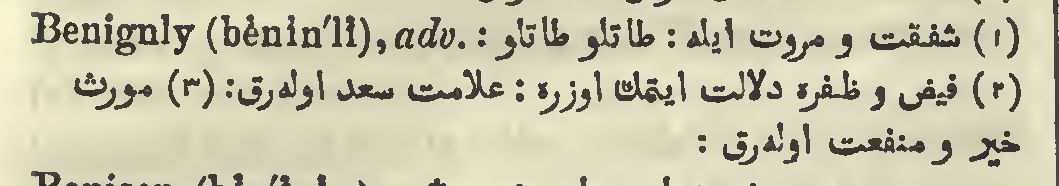 Benignly (bênîn'lî), adv. : (۱) شفقت و مروت ايله : طاتلو طاتلو :
(۲) فيض و ظفره دلالت ايتمك اوزره : علامت سعد اوله‌رق : (۳) مورث
خير و منفعت اوله‌رق :